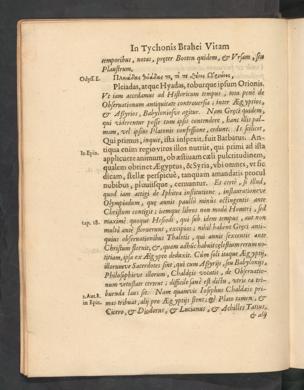 In Tychonis Brahei Vitam
temporibus, notas, præter Booten quidem, & Vrsam, siue
Plaustrum,
Odyss. Σ. Πληιάδας θ' Ὑάδας τε, τό τε σθένος Ὠρίωνος,
Pleiadas, atque Hyadas, roburque ipsum Orionis.
Vt iam accedamus ad Historicum tempus; tota penè de
Obseruationum antiquitate controuersia; inter Ægyptios,
& Assyrios, Babyloniosve agitur. Nam Græci quidem,
qui viderentur posse cum ipsis contendere, hanc illis pal-
mam, vel ipsius Platonis confessione, cedunt. Is scilicet,
Qui primus, inquit, ista inspexit, fuit Barbarus. An-
In Epin. tiqua enim regio viros illos nutriit, qui primi ad ista
applicuere animum, ob æstiuam cæli pulcritudinem,
qualem obtinet Ægyptus, & Syria, vbi omnes, vt sic
dicam, stellæ perspicuè, tanquam amandatis procul
nubibus, pluuiisque, cernuntur. Et certè, si illud,
quod iam attigi de Iphitea institutione, instaurationeve
Olympiadum, quæ annis paullò minùs octingentis ante
Christum contigit; itemque libros non modò Homeri, sed
cap. 18. maximè quoque Hesiodi, qui sub idem tempus, aut non
multò antè floruerunt, excipias; nihil habent Græci anti-
quius obseruationibus Thaletis, qui annis sexcentis ante
Christum floruit, &, quam adhuc habuit cælestium rerum no-
titiam, ipsa ex Ægypto deduxit. Cùm soli itaque Ægyptij,
illorumve Sacerdotes sint, qui cum Assyrijs, seu Babylonijs,
Philosophisve illorum, Chaldæis vocatis, de Obseruatio-
num vetustate certent; difficile sanè est dictu, vtris ea tri-
1. Ant. 8. buenda laus sit. Nam quamvis Iosephus Chaldæis pri-
in Epin. mas tribuat, alij pro Ægyptijs stent; & Plato tamen, &
Cicero, & Diodorus, & Lucianus, & Achilles Tatius,
& alij